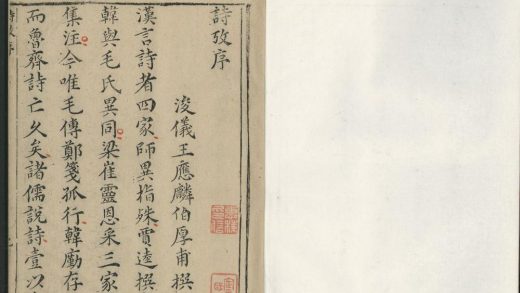 詩攷序
浚儀王應麟伯厚甫撰
漢言詩者四家師異指殊賈逵撰
韓與毛氏異同梁崔靈恩采三家
集注今唯毛傳鄭箋孤行韓廑存
而魯齊詩亡久矣諸儒說詩壹以